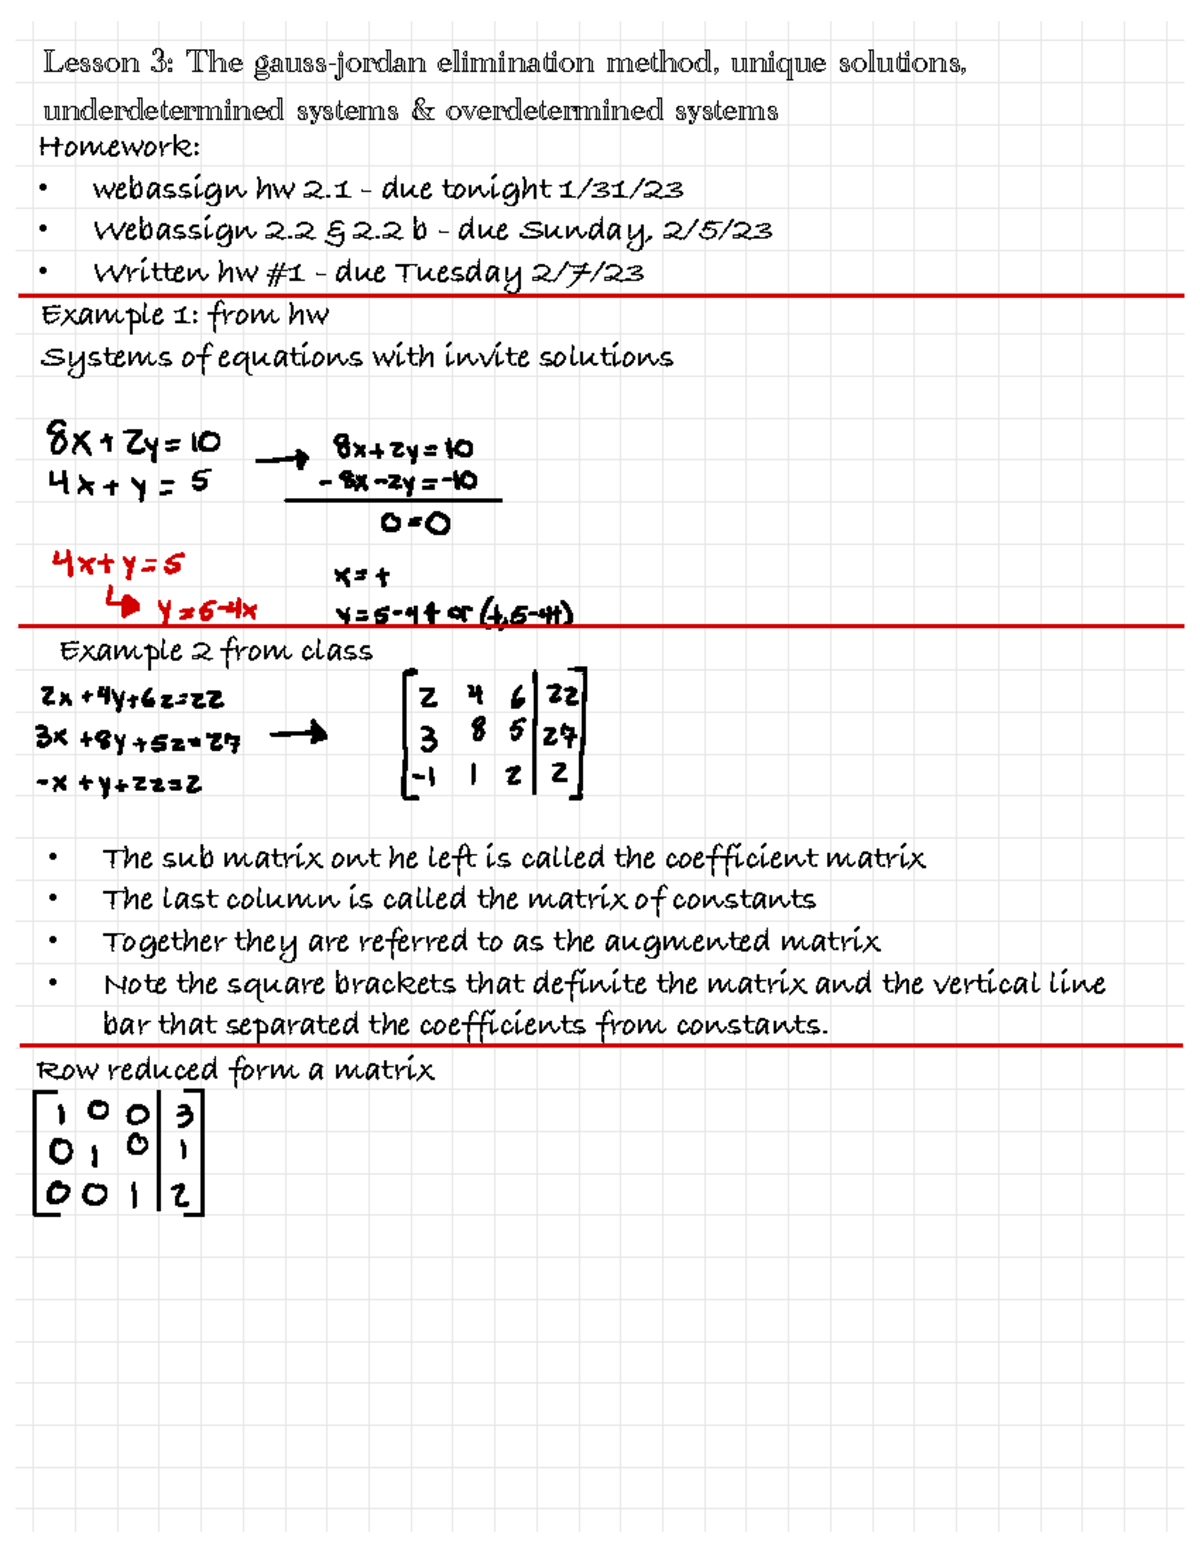 Lesson 3: The gauss-jordan elimination method, unique solutions,
underdetermined systems & overdetermined systems
Homework:
• webassign hw 2.1 - due tonight 1/31/23
• Webassign 2.2 & 2.2 b - due Sunday, 2/5/23
• Written hw #1 - due Tuesday 2/7/23
Example 1: from hw
Systems of equations with invite solutions
8x + 2y = 10 → 8x + 2y = 10
4x + y = 5 - 8x - 2y = -10
0 = 0
4x + y = 5
x = t
↳ y = 5-4x y = 5-4t or (t, 5-4t)
Example 2 from class
2x + 4y + 6z = 22 [ 2 4 6 | 22 ]
3x + 8y + 5z = 27 → [ 3 8 5 | 27 ]
-x + y + 2z = 2 [ -1 1 2 | 2 ]
• The sub matrix ont he left is called the coefficient matrix
• The last column is called the matrix of constants
• Together they are referred to as the augmented matrix
• Note the square brackets that definite the matrix and the vertical line
bar that separated the coefficients from constants.
Row reduced form a matrix
[ 1 0 0 | 3 ]
[ 0 1 0 | 1 ]
[ 0 0 1 | 2 ]